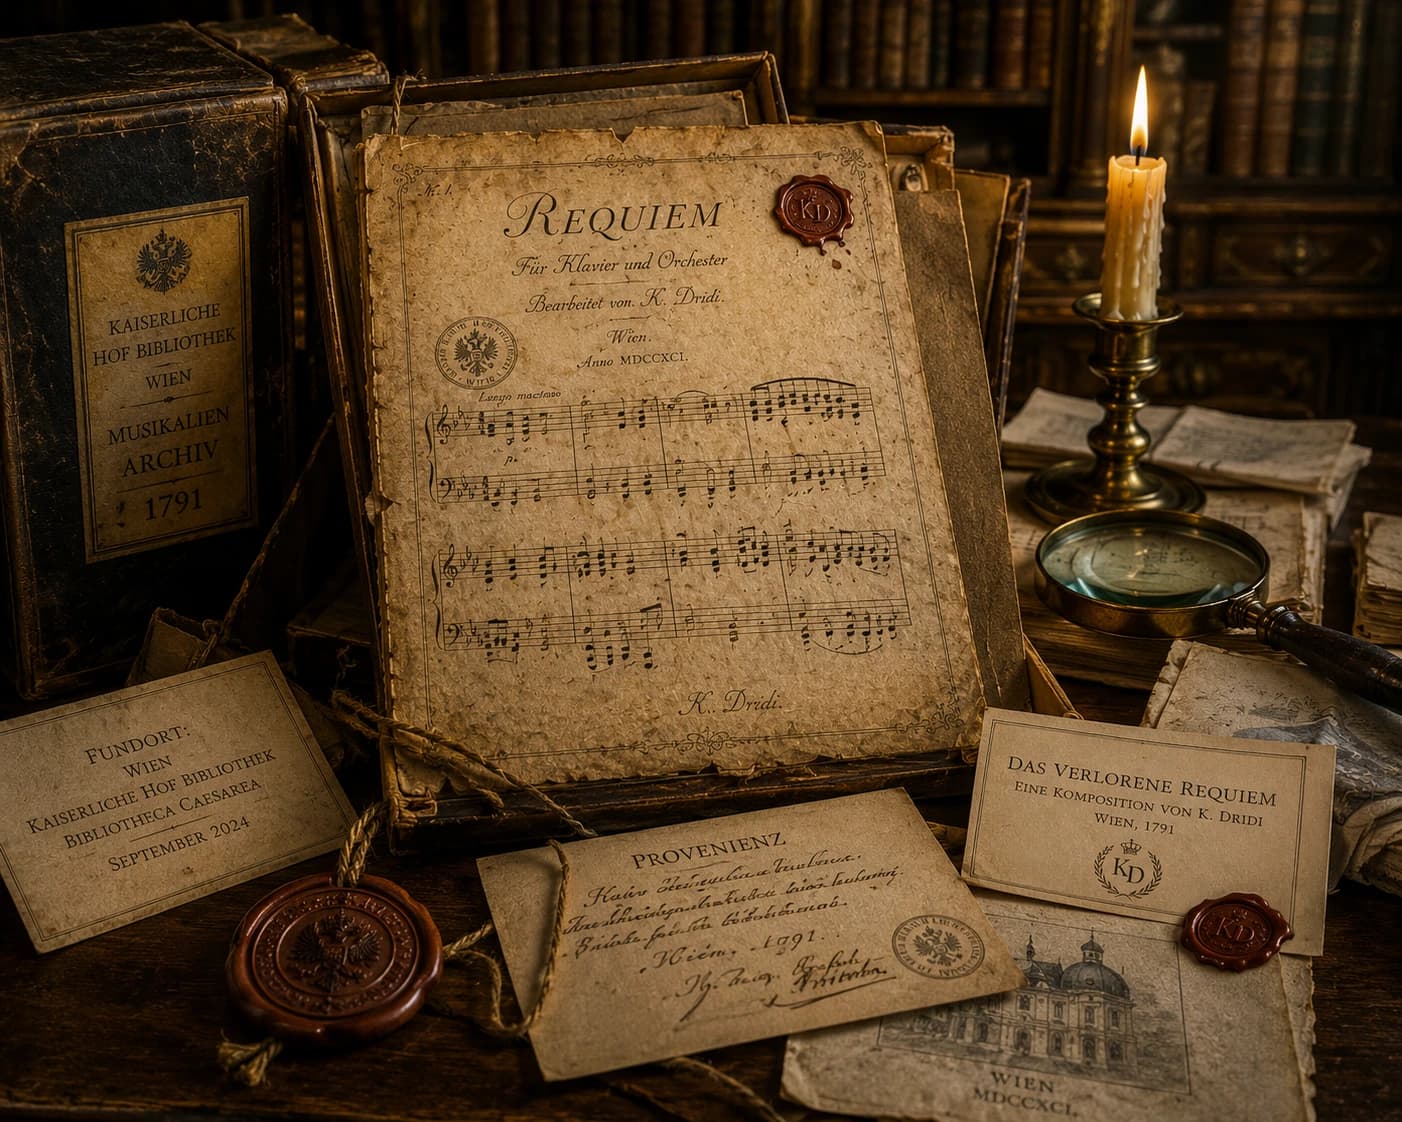 KAISERLICHE
HOF BIBLIOTHEK
WIEN
MUSIKALIEN
ARCHIV
1791
No. 1.
REQUIEM
Für Klavier und Orchester
Bearbeitet von. K. Dridi.
Wien.
Anno MDCCXCI.
Largo
p.
K. Dridi.
KD
FUNDORT:
WIEN
KAISERLICHE HOF BIBLIOTHEK
BIBLIOTHECA CAESAREA
SEPTEMBER 2024
PROVENIENZ
Wien. 1791.
DAS VERLORENE REQUIEM
EINE KOMPOSITION VON K. DRIDI
WIEN, 1791
KD
KD
WIEN
MDCCXCI.